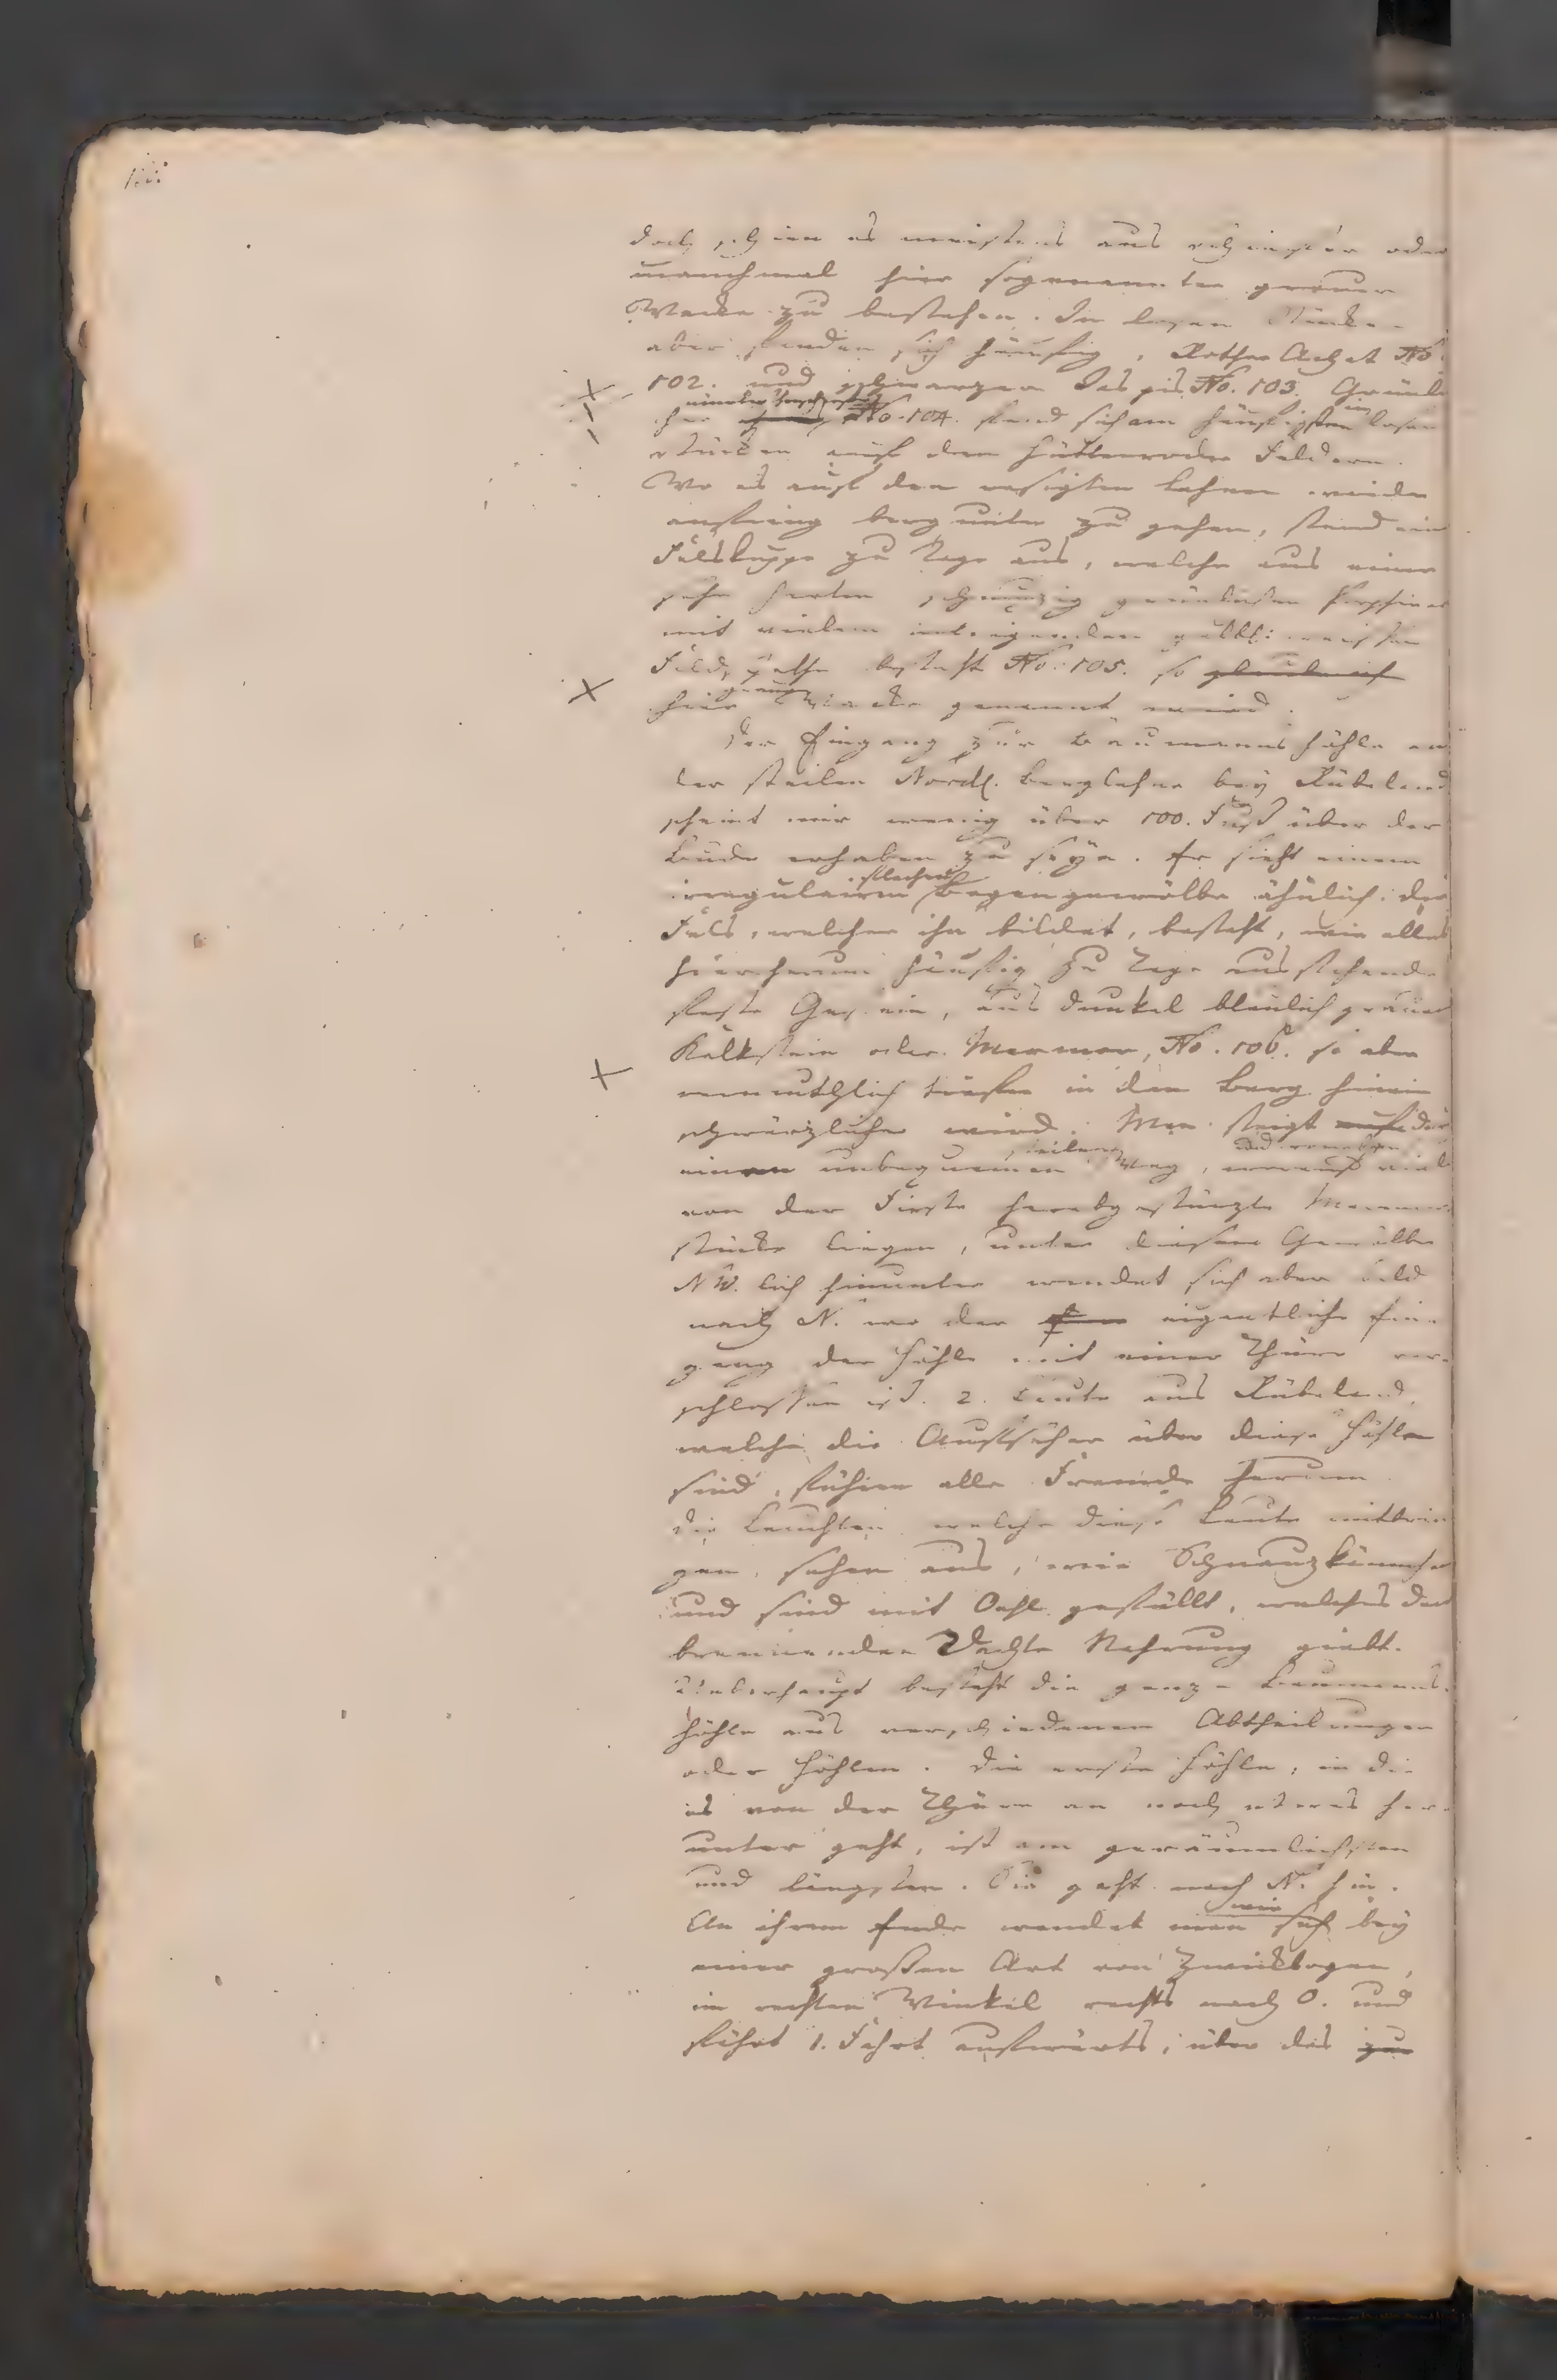 doch schien es meistens aus schiefer oder
manchmal hier sogenannter grauer
Wacke zu bestehen. In losen Stücken
aber fanden sich häufig, Rother Achat No
102. und schwarzer Jaspis No. 103. Grünli
cher No. 104. fand sich am häufigsten in losen
stücken auf den Hüttenroder Feldern.
Wo es auf den rasigten Lehnen wieder
anfieng berg unter zu gehen, stand eine
Felskuppe zu Tage aus, welche aus einem
sehr harten schmuzig grünlichen Porphier
mit vielem inliegenden gelbl. weissen
Feldspathe besteht No. 105. so glaube ich
hier graue Wacke genannt wird.
Der Eingang zur Baumanns höhle an
der steilen Nordl. Berglehne bey Rübeland
scheint mir wenig über 100. Fuß über der
Bude erhaben zu seyn. Er sieht einem
irregulairen flachen Bogengewölbe ähnlich. Der
Fels, welcher ihn bildet, besteht, wie alles
hierherum häufig zu Tage ausstehende
feste Gestein, aus dunkel bläulich grauen
Kalkstein oder Marmor, No. 106. so aber
vermuthlich tiefer in den Berg hinein
schwärzlicher wird. Man steigt auf
einen unbequemen steilen Weg, viele
von der Firste herabgestürzte Marmor
stücke liegen, unter diesem Gewölbe
NW. lich hinunter wendet sich aber bald
nach N. wo der eigentliche Ein-
gang der Höhle mit einer Thüre ver-
schlossen ist. 2. Leute aus Rübeland,
welche die Aufseher über diese Höhle
sind, führen alle Fremde herum.
Die Leuchten welche diese Leute mitbrin
gen, sehen aus, wie Schnauzkännchen
und sind mit Oehl gefüllt, welches den
brennenden Dachte Nahrung giebt.
Ueberhaupt besteht die ganze Baumanns-
höhle aus verschiedenen Abtheilungen
oder Höhlen. Die erste Höhle, in die
es von der Thüre an noch etwas her-
unter geht, ist am geräumlichsten
und längsten. Sie geht nach N. hin.
An ihrem Ende wendet man sich bey
einer großen Art von Zwickbogen,
im rechten Winkel rechts nach O. und
fährt 1. Fahrt aufwärts, über das zur